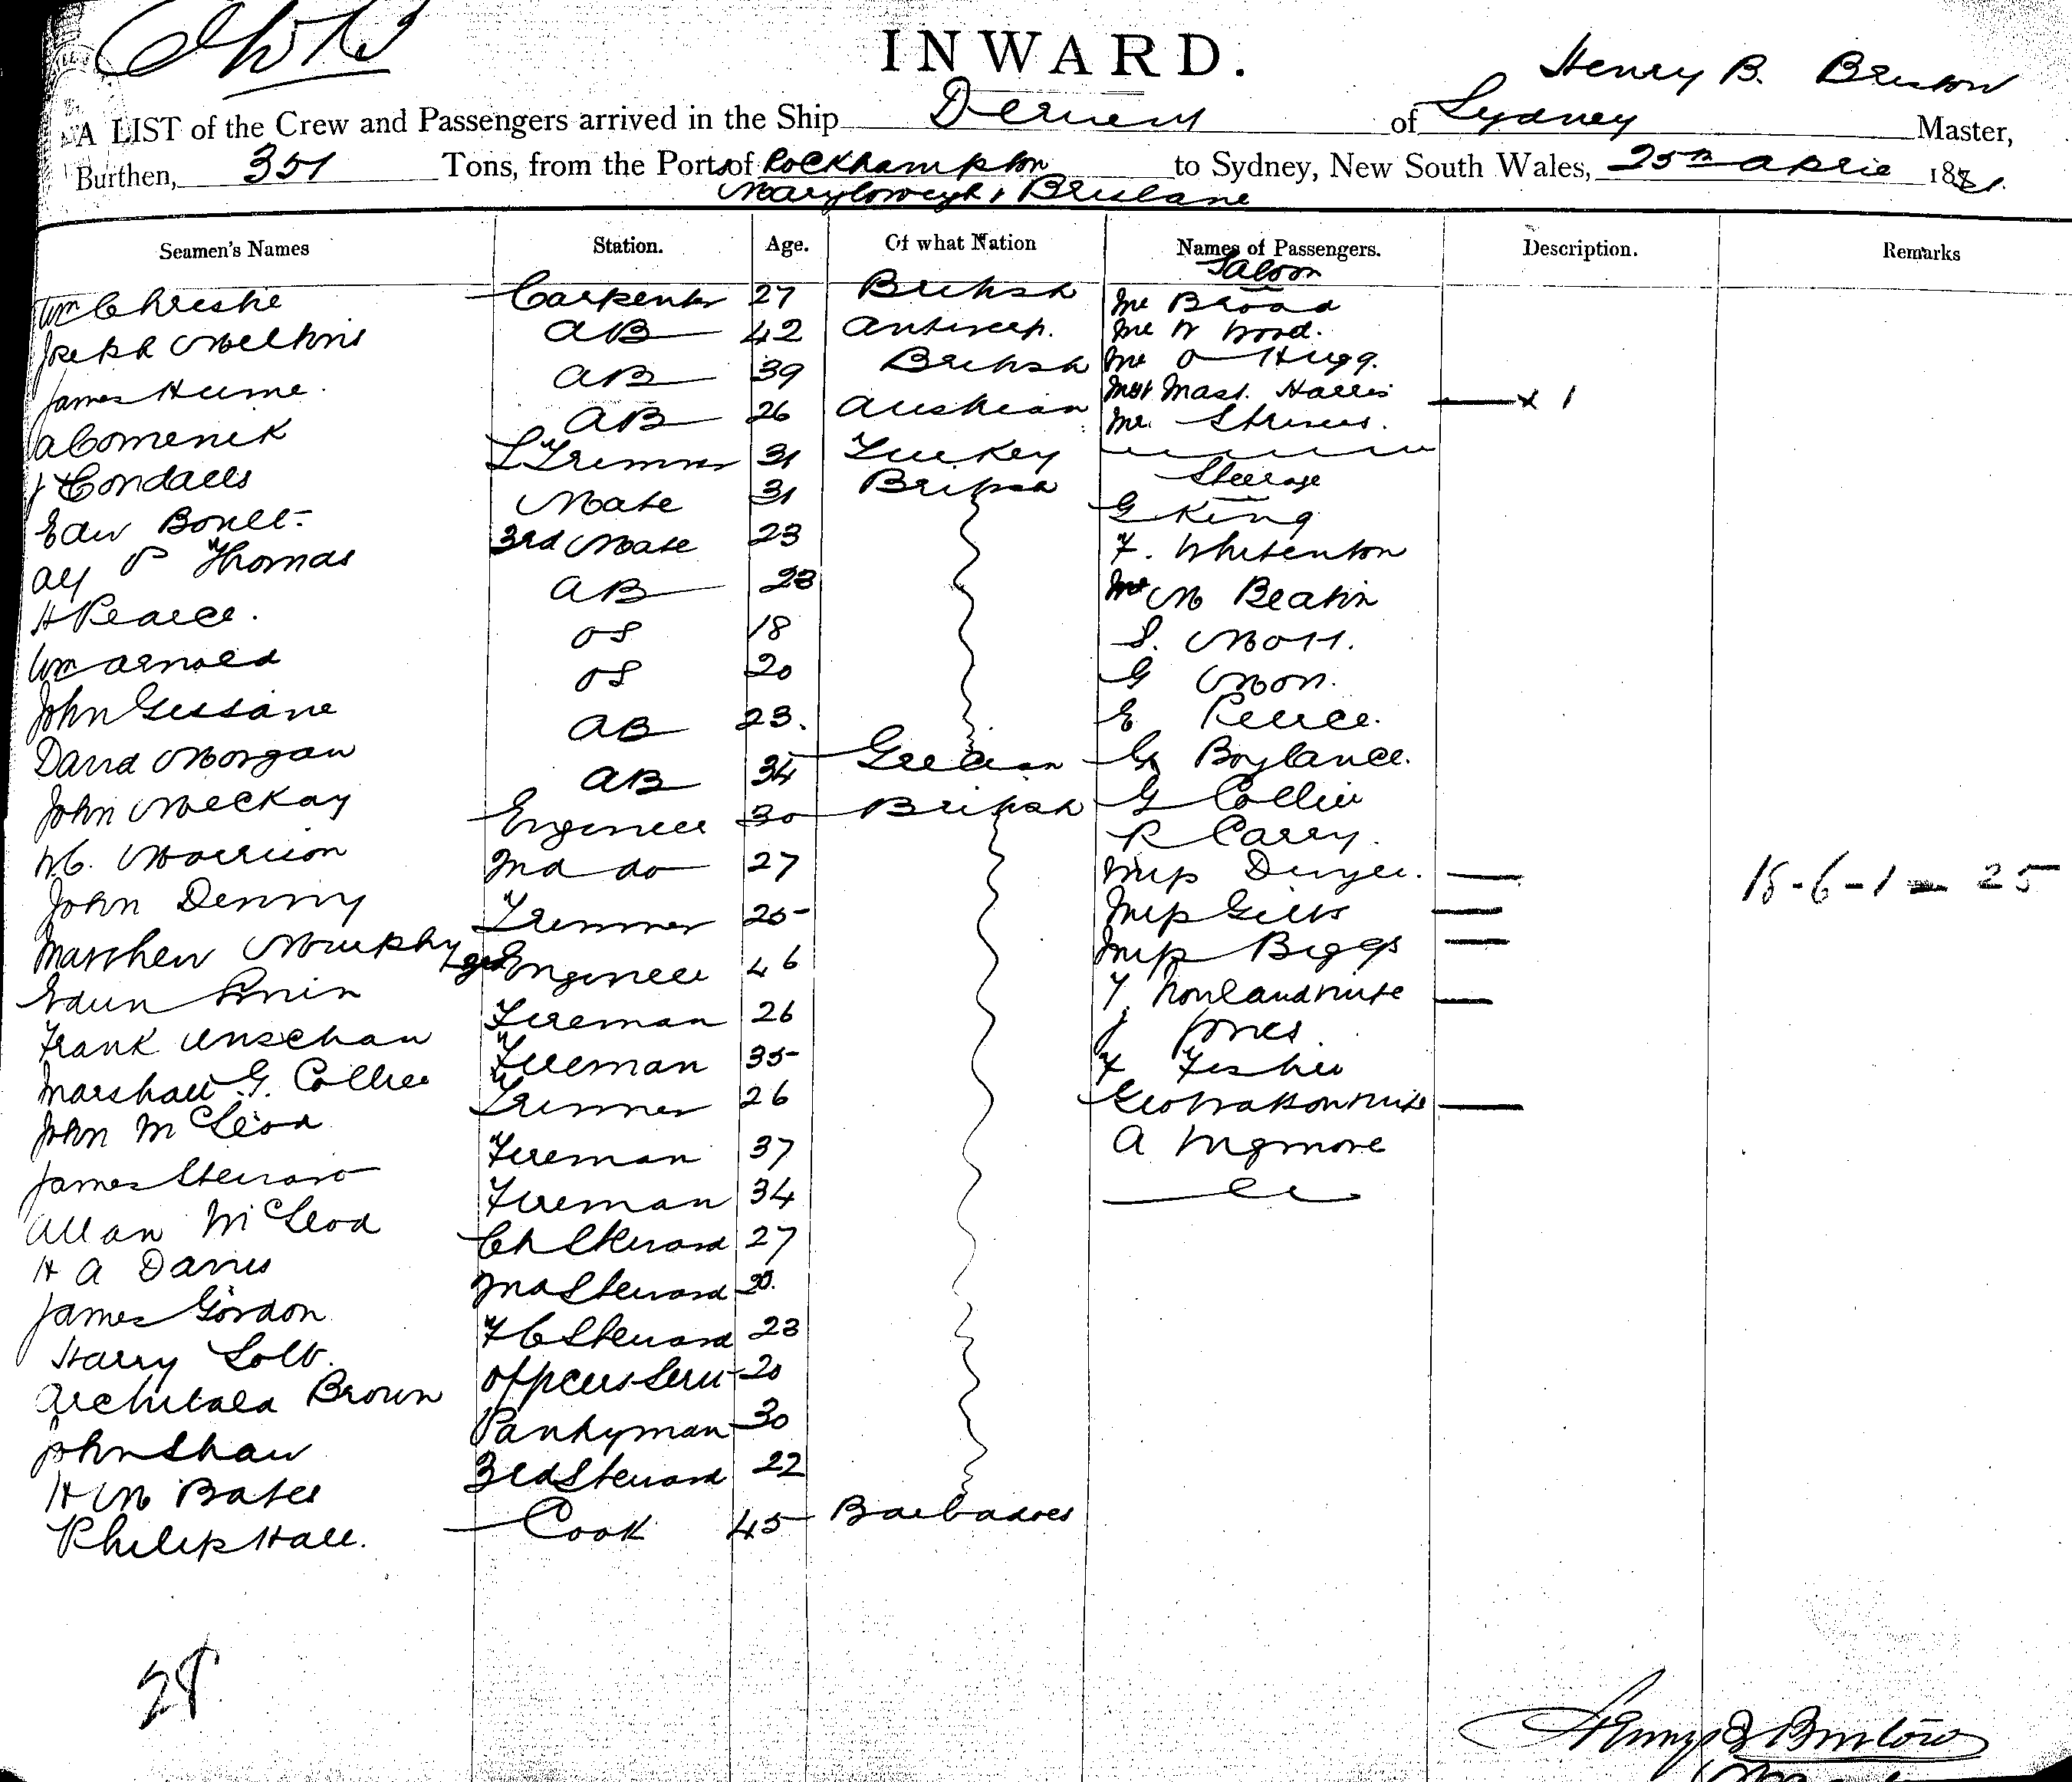 INWARD.
Henry B.
A LIST of the Crew and Passengers arrived in the Ship Derwent of Sydney Master,
Burthen, 351 Tons, from the Ports of Rockhampton to Sydney, New South Wales, 25th April 1881.
Maryborough & Brisbane
Seamen's Names Station. Age. Of what Nation Names of Passengers. Description. Remarks
Saloon
Wm Christie Carpenter 27 British Mr Broad
Joseph Melkins AB 42 Antwerp. Mr W Wood.
James Hume. AB 39 British Mr O Hugg.
A Comenik AB 26 Austrian Mrs & Mast. Harris x 1
J Condaels L Trimmer 31 Turkey Mr.
Edw Mate 31 British Steerage
Alf P Thomas 3rd Mate 23 G King
H Pearce. AB 23 F. Whitenton
Wm Arnold OS 18 M Beatin
John Gissane OS 20 S. Mott.
David Morgan AB 23. G Moon.
John McKay AB 34 Grecian E Peirce.
W.C. Morrison Engineer 30 British G Boylance.
John Denny 2nd do 27 G Collier
Matthew Murphy Trimmer 25 R Carry.
Edwin Engineer 46 Miss Dwyer. 18-6-1 = 25
Frank Unschan Fireman 26 Miss Gills
Marshall G. Collier Fireman 35 Miss Biggs
John McLeod Trimmer 26 T. Rowland & Wife
James Steward Fireman 37 J Jones
Allan McLeod Fireman 34 F Fisher
H A Davies Ch Steward 27 Geo Watson & Wife
James Gordon 2nd Steward A Wigmore
Harry Solt. F C Steward 23
Archibald Brown Officers Serv 20
John Shaw Pantryman 30
H M Bates 3rd Steward 22
Philip Hall. Cook 45 Barbadoes
28
Henry B